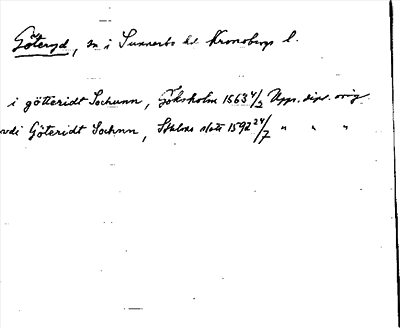 Göteryd, sn i Sunnerbo hd Kronobergs l.
i götteridt Sochnn, Göksholm 1563 4/2 Upps. dipl. orig.
vdi Göteridt Sochnn, Sthlms slott 1592 24/7 " " "